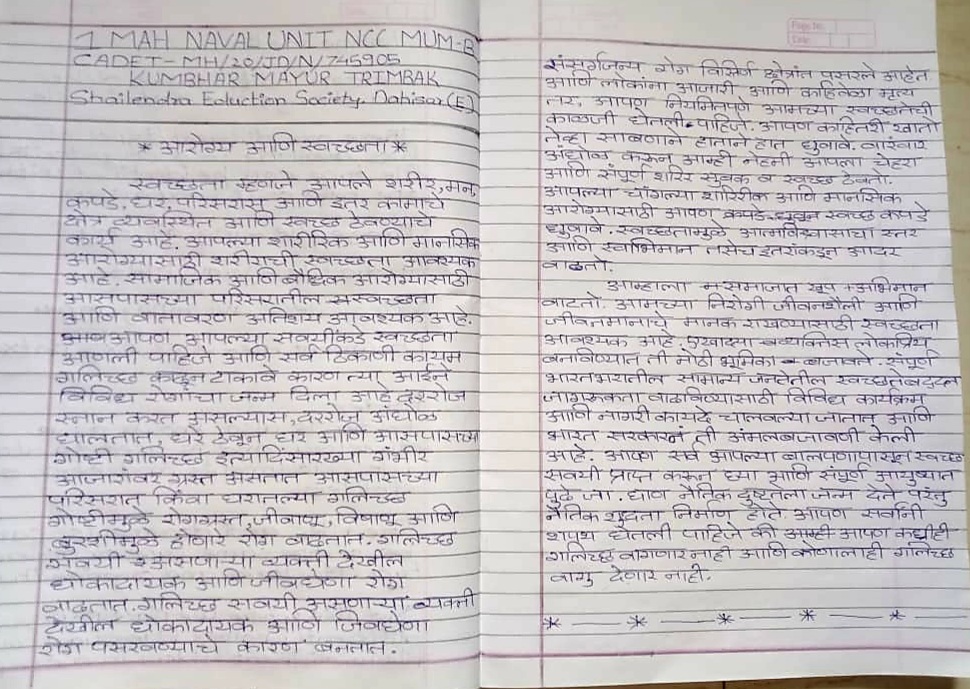 1 MAH NAVAL UNIT NCC MUM-B
CADET-MH/20/JD/N/745905
KUMBHAR MAYUR TRIMBAK
Shailendra Eduction Society, Dahisar (E)
* आरोग्य आणि स्वच्छता *
स्वच्छता म्हणजे आपले शरीर, मन,
कपडे, घर, परिसरास आणि इतर कामाचे
क्षेत्र व्यवस्थित आणि स्वच्छ ठेवण्याचे
कार्य आहे. आपल्या शारीरिक आणि मानसिक
आरोग्यासाठी शरीराची स्वच्छता आवश्यक
आहे. सामाजिक आणि बौधिक आरोग्यासाठी
आसपासच्या परिसरातील सस्वच्छता
आणि वातावरण अतिशय आवश्यक आहे.
आपण आपल्या सवयींकडे स्वच्छता
आणली पाहिजे आणि सर्व ठिकाणी कायम
गलिच्छ काढून टाकावे कारण त्या आईने
विविध रोगांचा जन्म दिला आहे दररोज
स्नान करत असल्यास, दररोज अंघोळ
घालतात, घरे ठेवून घर आणि आसपासच्या
गोष्टी गलिच्छ इत्यादिंसारख्या गंभीर
आजारांवर ग्रस्त असतात आसपासच्या
परिसरात किंवा घरातल्या गलिच्छ
गोष्टीमुळे रोगग्रस्त, जीवाणू, विषाणू आणि
बुरशीमुळे होणार रोग वाढतात. गलिच्छ
सवयी असणाऱ्या व्यक्ती देखील
धोकादायक आणि जीवघेणा रोग
वाढतात. गलिच्छ सवयी असणाऱ्या व्यक्ती
देखील धोकादायक आणि जिवघेणा
रोग पसरवण्याचे कारण बनतात.
Page No.
Date
संसर्गजन्य रोग विस्तिर्ण क्षेत्रांत पसरले आहेत
आणि लोकांना आजारी आणि काहिवेळा मृत्य
तर, आपण नियमितपणे आमच्या स्वच्छतेची
काळजी घेतली पाहिजे. आपण काहितरी खातो
तेव्हा साबणाने हाताने हात धुवावे. वारंवार
अंघोळ करून आम्ही नेहमी आपला चेहरा
आणि संपूर्ण शरिर सुबक व स्वच्छ ठेवतो.
आपल्या चांगल्या शारिरीक आणि मानसिक
आरोग्यासाठी आपण कपडे धुवून स्वच्छ कपडे
धुवावे. स्वच्छतामुळे आत्मविश्वासाचा स्तर
आणि स्वाभिमान तसेच इतरांकडून आदर
वाढतो.
आम्हाला समाजात खूप अभिमान
वाटतो. आमच्या निरोगी जीवनशैली आणि
जीवनमानाचे मानक राखण्यासाठी स्वच्छता
आवश्यक आहे. एखाद्या व्यक्तीस लोकप्रिय
बनविण्यात ती मोठी भूमिका बजावते. संपूर्ण
भारतभरातील सामान्य जनतेतील स्वच्छतेबद्दल
जागरुकता वाढविण्यासाठी विविध कार्यक्रम
आणि नागरी कायदे चालवल्या जातात आणि
भारत सरकारने ती अंमलबजावणी केली
आहे. आपण सर्व आपल्या बालपणापासून स्वच्छ
सवयी प्राप्त करून घ्या आणि संपूर्ण आयुष्यात
पुढे जा. घाण नैतिक दुष्टतेला जन्म देते परंतु
नैतिक शुद्धता निर्माण होते. आपण सर्वांनी
शपथ घेतली पाहिजे की आपण कधीही
गलिच्छ वागणार नाही आणि कोणालाही गलिच्छ
वागु देणार नाही.
* — * — * — * — *